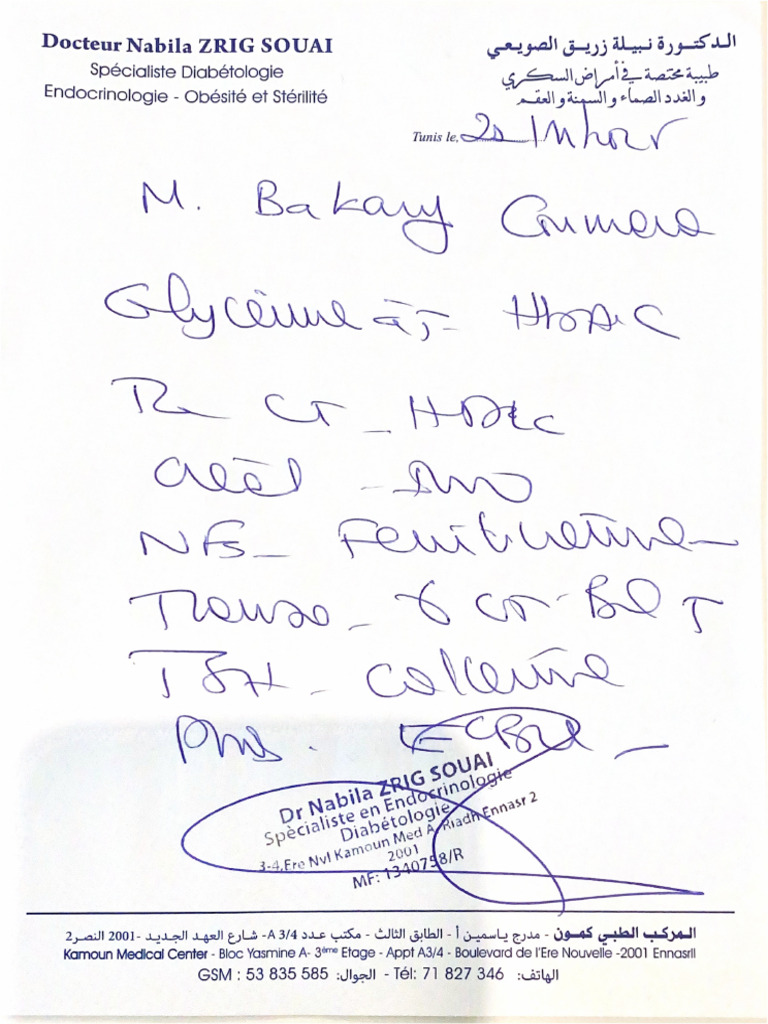 Docteur Nabila ZRIG SOUAI
Spécialiste Diabétologie
Endocrinologie - Obésité et Stérilité
الدكتورة نبيلة زريق الصويعي
طبيبة مختصة في أمراض السكري
والغدد الصماء والسمنة والعقم
Tunis le, 20
M. Bakary
Glycémie àj - HbA1c
CT - HDLc
créat -
NFS - Ferritinémie -
Transa - γ GT - Bil T
TSH - calcémie
Phos. ECBU -
Dr Nabila ZRIG SOUAI
Spècialiste en Endocrinologie
Diabétologie
3-4,Ere Nvl Kamoun Med A, Riadh Ennasr 2
2001
MF: 1340758/R
المركب الطبي كمون - مدرج ياسمين أ - الطابق الثالث - مكتب عدد A 3/4- شارع العهد الجديد -2001 النصر2
Kamoun Medical Center - Bloc Yasmine A- 3ème Etage - Appt A3/4 - Boulevard de l'Ere Nouvelle -2001 EnnasrII
GSM : 53 835 585 الجوال: - Tél: 71 827 346 الهاتف: